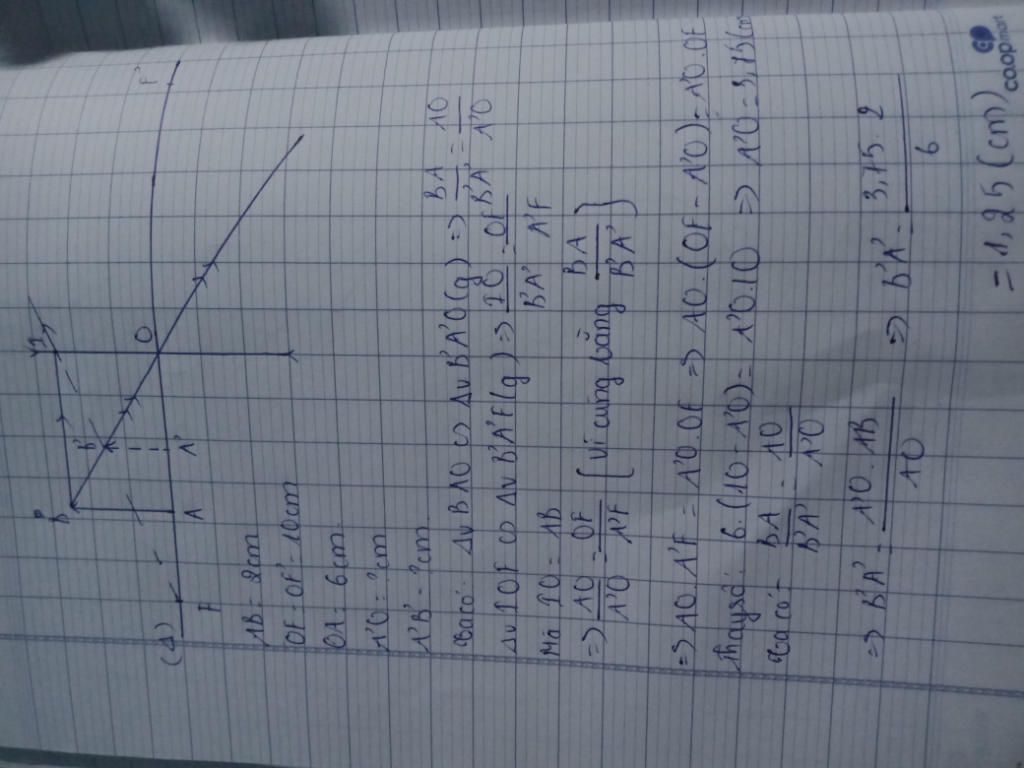 F'
I
O
B
B'
A
A'
F
(Δ)
AB = 2cm
OF = OF' = 10cm
OA = 6cm
A'O = ? cm
A'B' = ? cm
Ta có: Δv BAO ∽ Δv B'A'O (g) => BA/B'A' = AO/A'O
Δv IOF ∽ Δv B'A'F (g) => IO/B'A' = OF/A'F
Mà IO = AB
=> AO/A'O = OF/A'F [vì cùng bằng BA/B'A']
=> AO.A'F = A'O.OF => AO.(OF - A'O) = A'O.OF
Thay số: 6.(10 - A'O) = A'O.10 => A'O = 3,75(cm
Ta có: BA/B'A' = AO/A'O
=> B'A' = A'O.AB/AO => B'A' = 3,75.2/6
= 1,25 (cm)
coopmart